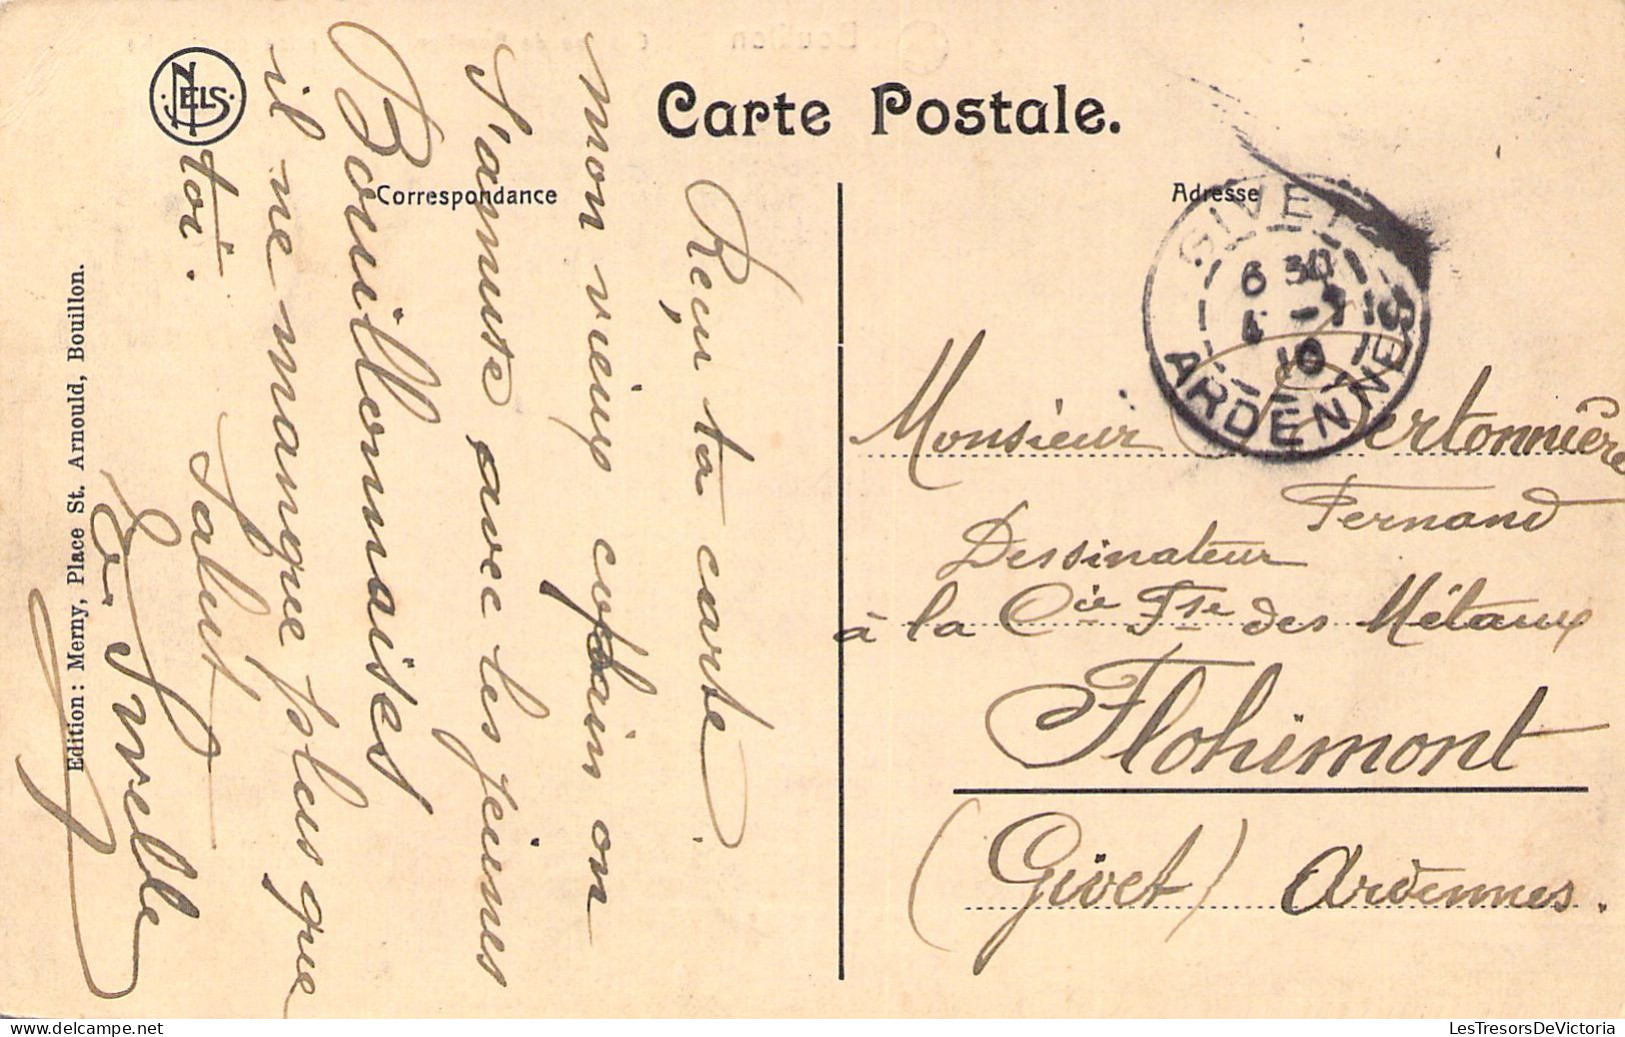 Carte Postale.
Correspondance
Adresse
NELS
Edition: Merny, Place St. Arnould, Bouillon.
Reçu ta carte.
mon vieux copain on
s'amuse avec les jeunes
Bouillonnaises
il ne manque plus que
toi.
Salut,
GIVET
6 30
10
ARDENNES
Monsieur
Fernand
Dessinateur
à la Cie Fse des Métaux
Flohimont
(Givet) Ardennes.
LesTresorsDeVictoria
www.delcampe.net